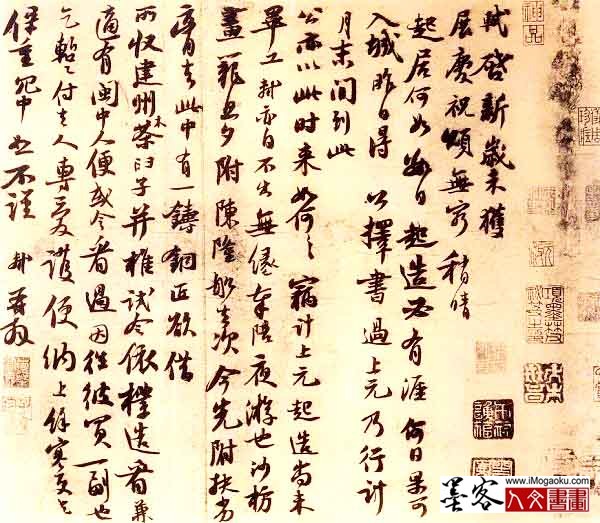 軾啓新歲未獲
展慶祝頌無窮稍晴
起居何如數日起造必有涯何日果可
入城昨日得公擇書過上元乃行計
月末間到此
公亦以此時来如何々竊計上元起造尚未
畢工軾亦自不出無緣奉陪夜游也沙枋
畫籠旦夕附陳隆舡去次今先附扶劣
膏去此中有一鑄銅匠欲借
所收建州木茶臼子并椎試令依樣造看兼
適有閩中人便或令看過因往彼買一副也
乞蹔付去人專愛護便納上餘寒更乞
保重冗中恕不謹 軾再拜
www.iMogaoku.com
墨客人文書畫